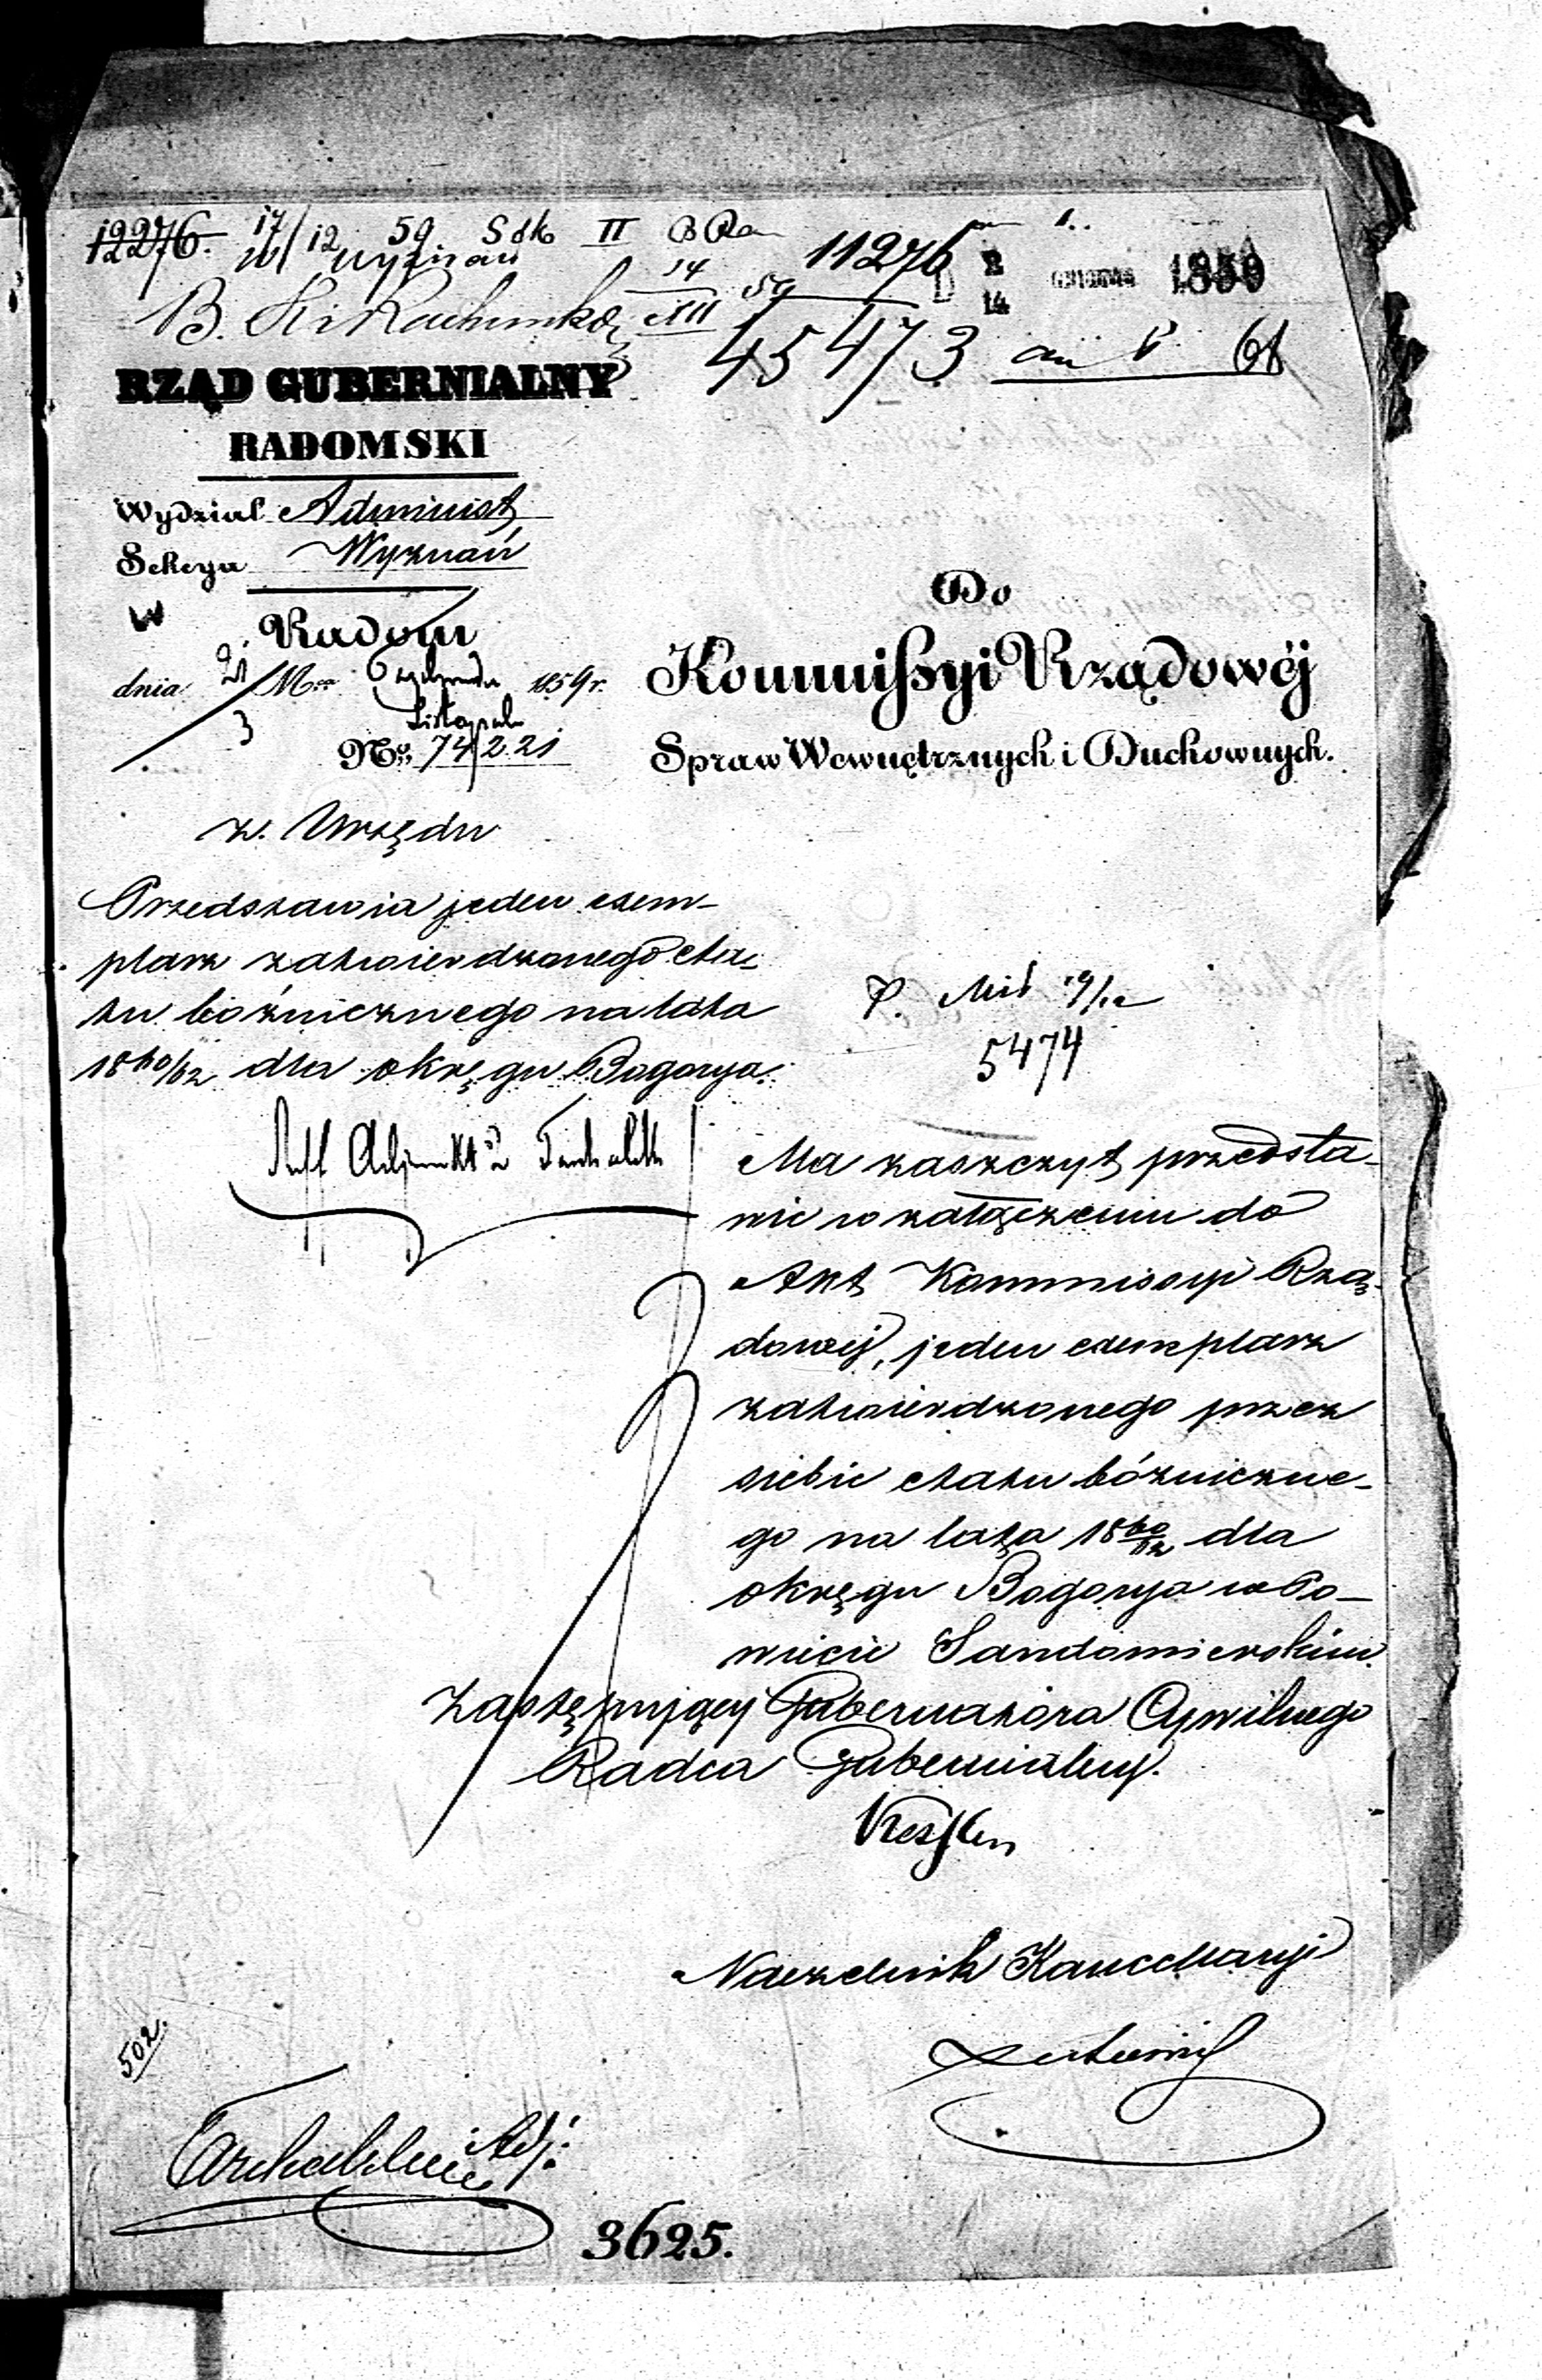 12276. 17/12 59 Sdk II
Wyznań
11276
14 1859
B.
XII
45473 61
RZĄD GUBERNIALNY
RADOMSKI
Wydział Administ
Sekcya Wyznań
w Radom
dnia 21/3 M-ca Października Listopada 1859 r.
No. 74221
Do
Kommissyi Rządowéj
Spraw Wewnętrznych i Duchownych.
z Urzędu
Przedstawia jeden exem-
plarz zatwierdzonego eta-
tu bóżnicznego na lata
1860/62 dla okręgu Bogorya.
5474
Ma zaszczyt przedsta-
wić w załączeniu do
Akt Kommissyi Rzą-
dowej, jeden exemplarz
zatwierdzonego przez
siebie etatu bóżniczne-
go na lata 1860/62 dla
okręgu Bogorya w Po-
wiecie Sandomierskim.
Zastępujący Gubernatora Cywilnego
Radca Gubernialny.
Naczelnik Kancellaryi
502.
Adj:
3625.